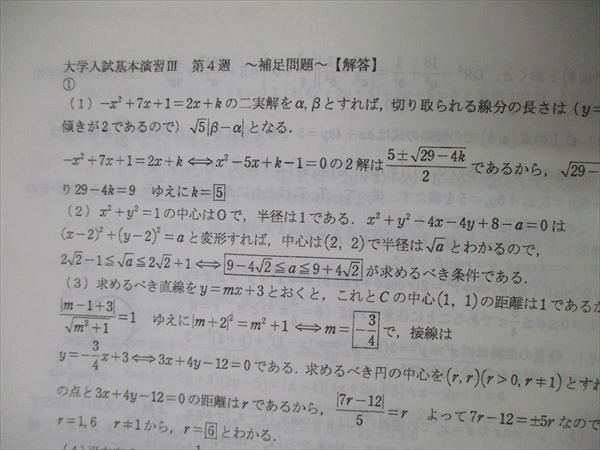 大学入試基本演習Ⅲ 第4週 ～補足問題～【解答】
①
(1) −x²+7x+1=2x+k の二実解をα, βとすれば，切り取られる線分の長さは (y=
傾きが2であるので) √5|β−α| となる．
−x²+7x+1=2x+k ⟺ x²−5x+k−1=0 の2解は (5±√(29−4k))/2 であるから，√29−
り 29−4k=9 ゆえに k=5
(2) x²+y²=1 の中心はOで，半径は1である．x²+y²−4x−4y+8−a=0 は
(x−2)²+(y−2)²=a と変形すれば，中心は(2, 2)で半径は√a とわかるので，
2√2−1≦√a≦2√2+1 ⟺ 9−4√2≦a≦9+4√2 が求めるべき条件である．
(3) 求めるべき直線を y=mx+3 とおくと，これとCの中心(1, 1)の距離は1であるか
|m−1+3|/√(m²+1)=1 ゆえに |m+2|²=m²+1 ⟺ m=−3/4 で，接線は
y=−3/4x+3 ⟺ 3x+4y−12=0 である．求めるべき円の中心を(r, r)(r>0, r≠1)とすれ
の点と3x+4y−12=0の距離はrであるから，|7r−12|/5=r よって7r−12=±5r なので
r=1, 6 r≠1から，r=6 とわかる．